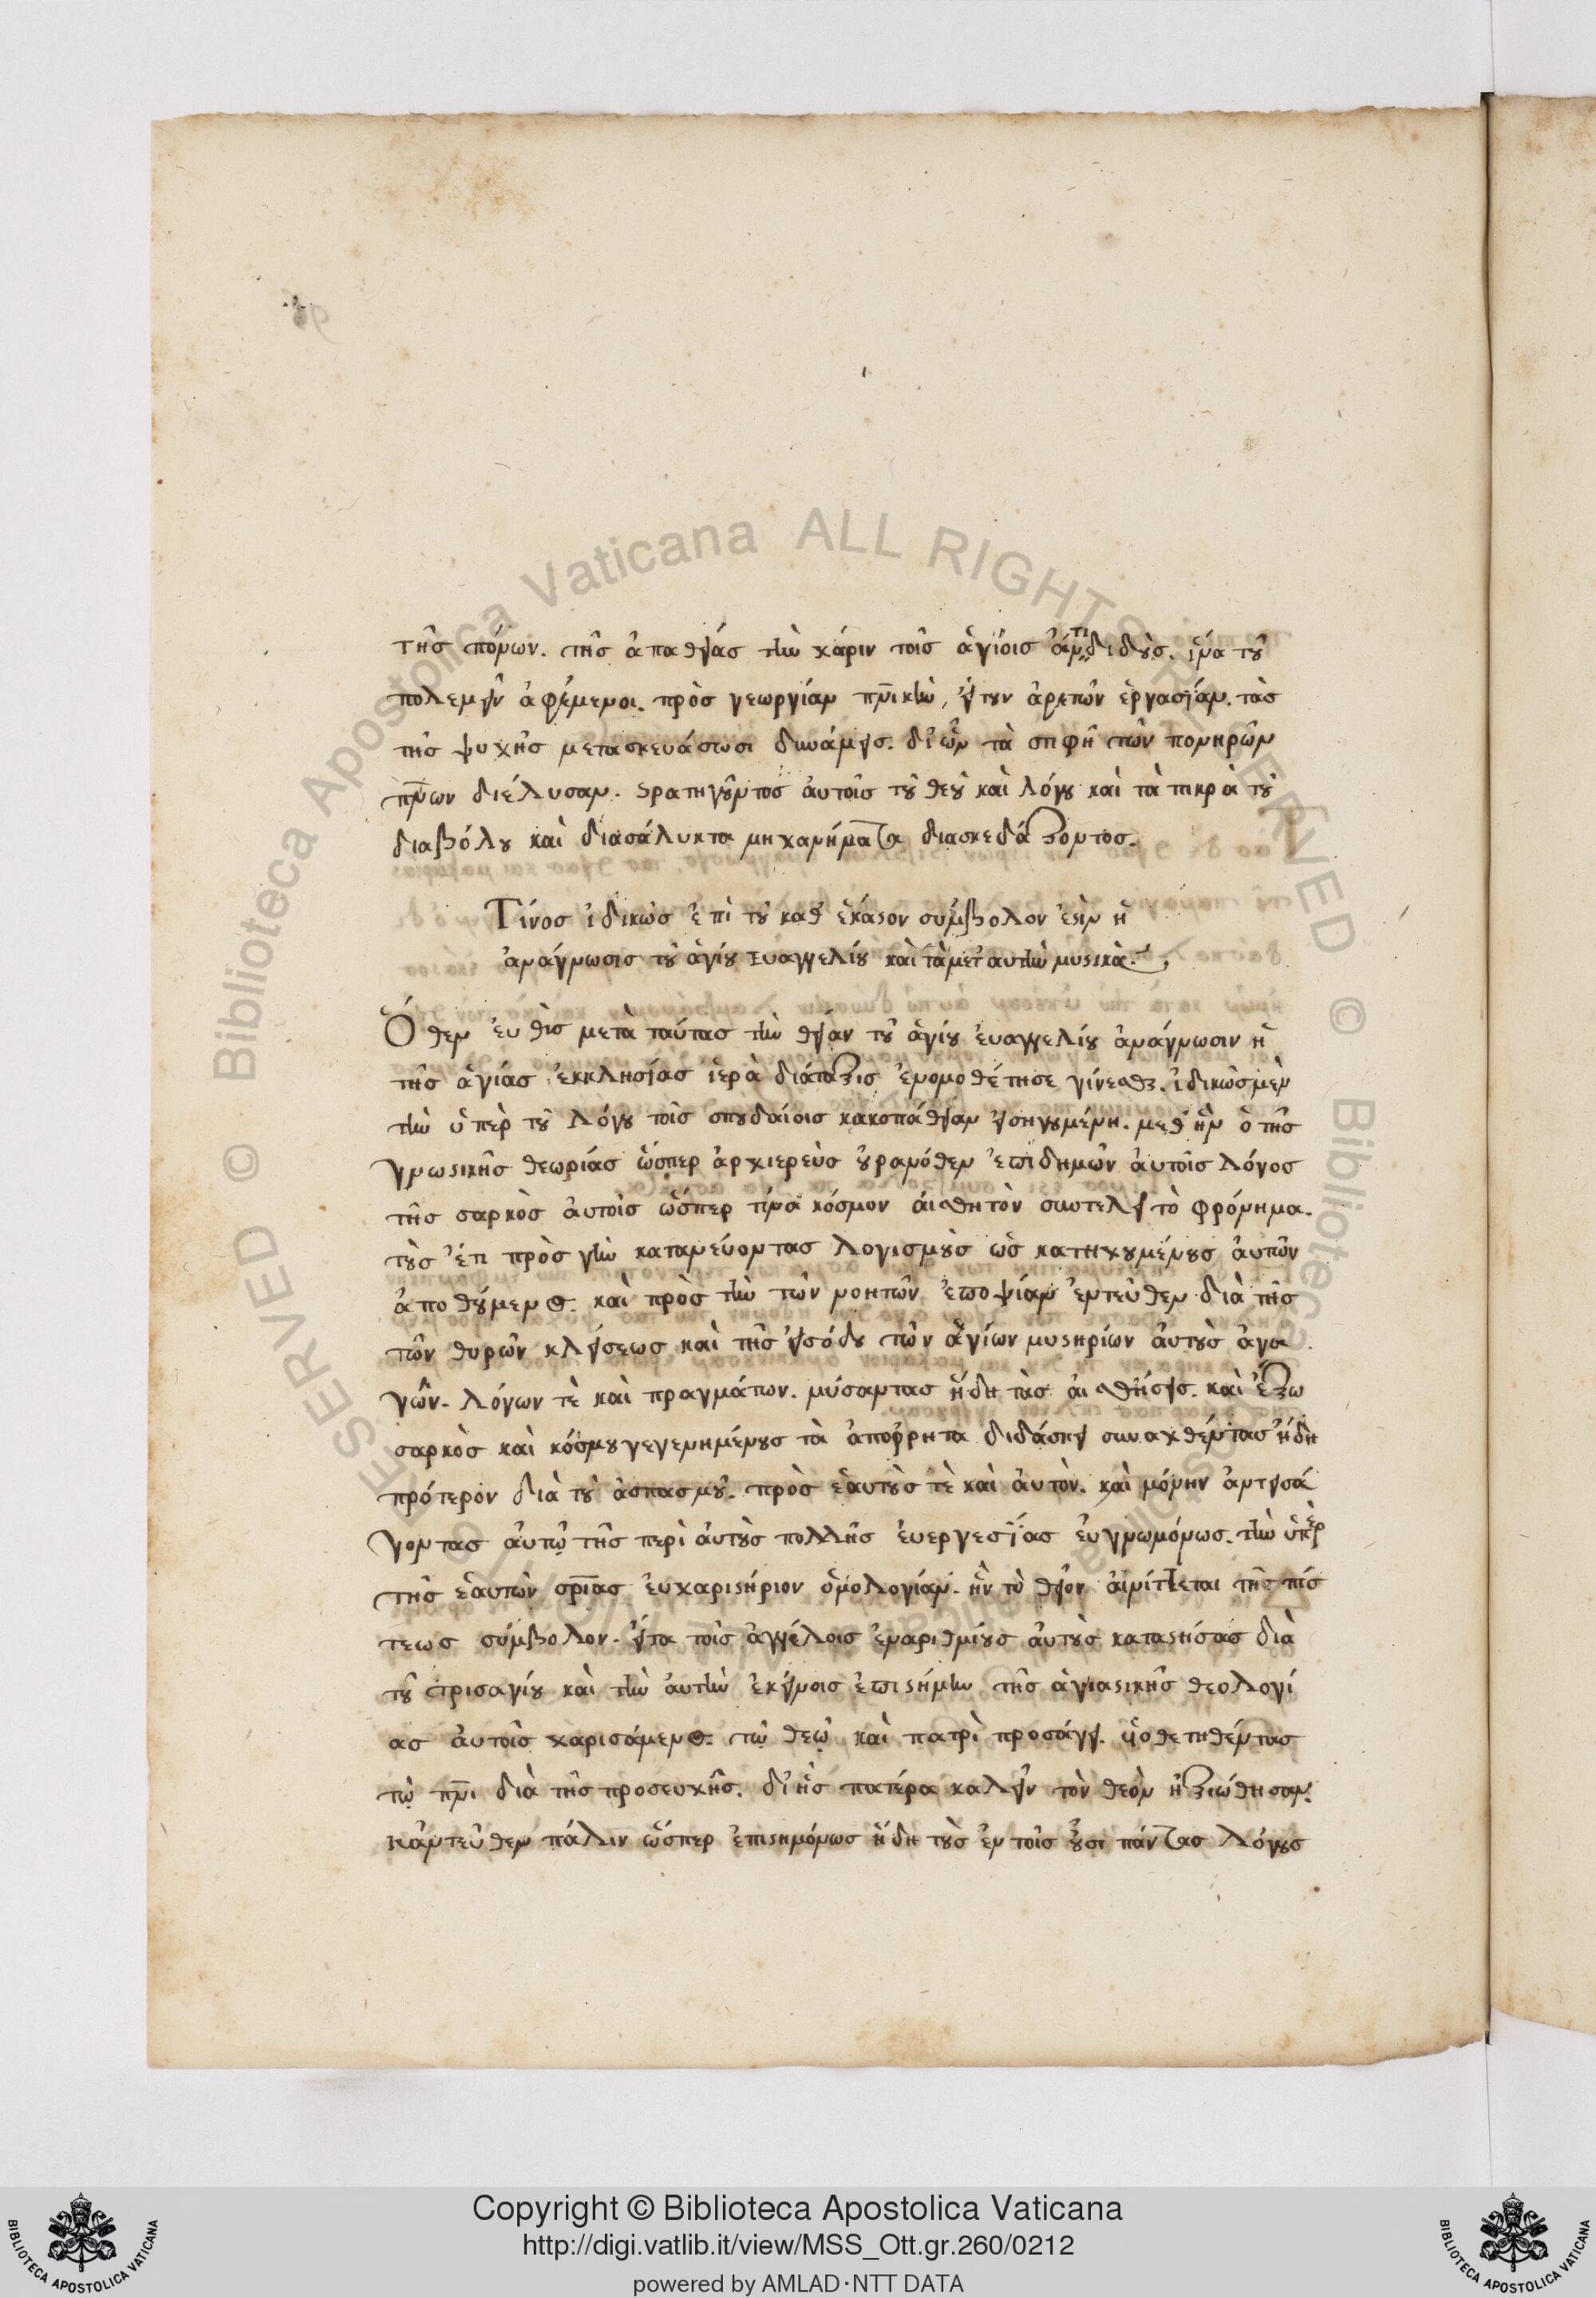 τῆς πόνων. τῆς ἀπαθείας τὴν χάριν τοῖς ἁγίοις ἀντιδιδοὺς. ἵνα τοῦ
πολεμεῖν ἀφέμενοι. πρὸς γεωργίαν πνικὴν, εἴτουν ἀρετῶν ἐργασίαν. τὰς
τῆς ψυχῆς μετασκευάσωσι δυνάμεις. δι' ὧν τὰ στίφη τῶν πονηρῶν
πνων διέλυσαν. στρατηγοῦντος αὐτοῖς τοῦ θεοῦ καὶ λόγου καὶ τὰ πικρὰ τοῦ
διαβόλου καὶ διασάλυκτα μηχανήματα διασκεδάζοντος.
Τίνος ἰδικῶς ἐπὶ τοῦ καθ' ἕκαστον σύμβολον ἐστὶν ἡ
ἀνάγνωσις τοῦ ἁγίου Εὐαγγελίου καὶ τὰ μετ' αυτὴν μυστικὰ.
Ὅθεν εὐθὶς μετὰ ταύτας τὴν θείαν τοῦ ἁγίου εὐαγγελίου ἀνάγνωσιν ἡ
τῆς ἁγίας ἐκκλησίας ἱερὰ διάταξις ἐνομοθέτησε γίνεσθαι. ἰδικῶς μὲν
τὴν ὑπὲρ τοῦ Λόγου τοῖς σπουδαίοις κακοπάθειαν εἰσηγουμένη. μεθ' ἣν ὁ τῆς
γνωστικῆς θεωρίας ὥσπερ ἀρχιερεὺς οὐρανόθεν ἐπιδημῶν αὐτοῖς λόγος
τῆς σαρκὸς αὐτοῖς ὥσπερ τίνα κόσμον αἰσθητὸν συστελεῖ τὸ φρόνημα.
τοὺς ἔτι πρὸς γῆν κατανεύοντας λογισμοὺς ὡς κατηχουμένους αὐτῶν
ἀποθούμενος. καὶ πρὸς τὴν τῶν νοητῶν ἐποψίαν ἐντεῦθεν διὰ τῆς
τῶν θυρῶν κλείσεως καὶ τῆς εἰσόδου τῶν ἁγίων μυστηρίων αὐτοὺς ἀγα
γῶν. λόγων τὲ καὶ πραγμάτων. μύσαντας ἤδη τὰς αἰσθήσεις. καὶ ἔξω
σαρκὸς καὶ κόσμου γεγενημένους τὰ ἀπόρρητα διδάσκει συναχθέντας ἤδη
πρότερον διὰ τοῦ ἀσπασμοῦ. πρὸς ἑαυτοὺς τὲ καὶ αὐτὸν. καὶ μόνην ἀντεισά
γοντας αὐτῷ τῆς περὶ αὐτοὺς πολλῆς εὐεργεσίας εὐγνωμόνως. τὴν ὑπὲρ
τῆς ἑαυτῶν σριας εὐχαριστήριον ὁμολογίαν. ἣν τὸ θεῖον αἰνίττεται τῆς πίσ
τεως σύμβολον. εἶτα τοῖς ἀγγέλοις ἐναριθμίους αὐτοὺς καταστήσας διὰ
τοῦ τρισαγίου καὶ τὴν αὐτὴν ἐκείνοις ἐπιστήμην τῆς ἁγιαστικῆς θεολογί
ας αὐτοῖς χαρισάμενος. τῷ θεῷ καὶ πατρὶ προσάγει. υἱοθετηθέντας
τῷ πνι διὰ τῆς προσευχῆς. δι' ἧς πατέρα καλεῖν τὸν θεὸν ἠξιώθησαν.
κἀντεῦθεν πάλιν ὥσπερ ἐπιστημόνως ἤδη τοὺς ἐν τοῖς οὖσι πάντας λόγους
Copyright © Biblioteca Apostolica Vaticana
http://digi.vatlib.it/view/MSS_Ott.gr.260/0212
powered by AMLAD·NTT DATA